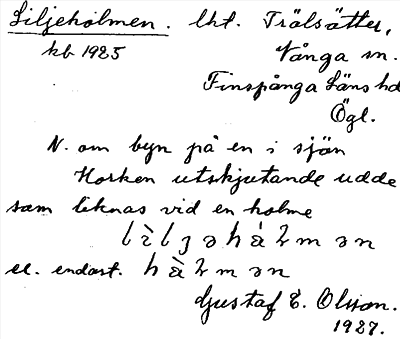 Liljeholmen. lht. Trälsätter,
kb 1925 Vånga sn.
Finspånga Läns hd
Ögl.
N. om byn på en i sjön
Horken utskjutande udde
som liknas vid en holme
lìlȝəhàɫmən
el. endast. hàɫmən
Gustaf E. Olsson.
1927.